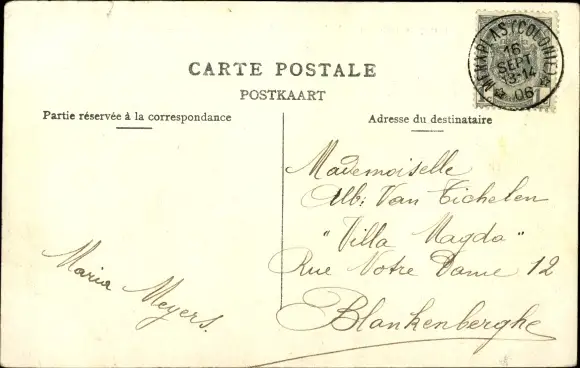 MERXPLAS (COLONIE)
16
SEPT
13-14
06
1
CARTE POSTALE
POSTKAART
Partie réservée à la correspondance
Adresse du destinataire
Mademoiselle
Alb: Van Tichelen
"Villa Magda"
Rue Notre Dame 12
Blankenberghe
Maria
Meyers.